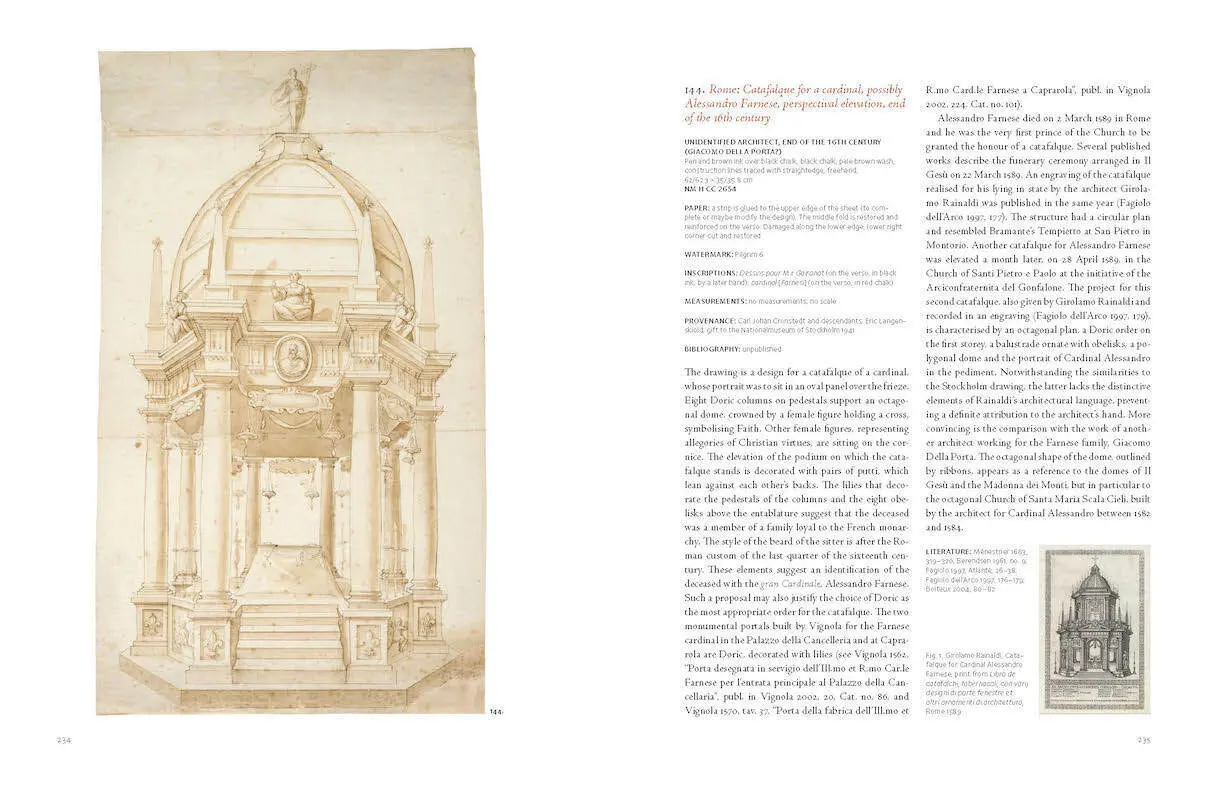 144.
234
144. Rome: Catafalque for a cardinal, possibly
Alessandro Farnese, perspectival elevation, end
of the 16th century
UNIDENTIFIED ARCHITECT, END OF THE 16TH CENTURY
(GIACOMO DELLA PORTA?)
Pen and brown ink over black chalk, black chalk, pale brown wash,
construction lines traced with straightedge, freehand
62/62.3 × 35/35.8 cm
NM H CC 2654
PAPER: a strip is glued to the upper edge of the sheet (to com-
plete or maybe modify the design). The middle fold is restored and
reinforced on the verso. Damaged along the lower edge, lower right
corner cut and restored
WATERMARK: Pilgrim 6
INSCRIPTIONS: Dessins pour M.r Gairanot (on the verso, in black
ink, by a later hand); cardinal [Farnesi] (on the verso, in red chalk)
MEASUREMENTS: no measurements, no scale
PROVENANCE: Carl Johan Cronstedt and descendants, Eric Langen-
skiöld, gift to the Nationalmuseum of Stockholm 1941
BIBLIOGRAPHY: unpublished
The drawing is a design for a catafalque of a cardinal,
whose portrait was to sit in an oval panel over the frieze.
Eight Doric columns on pedestals support an octago-
nal dome, crowned by a female figure holding a cross,
symbolising Faith. Other female figures, representing
allegories of Christian virtues, are sitting on the cor-
nice. The elevation of the podium on which the cata-
falque stands is decorated with pairs of putti, which
lean against each other's backs. The lilies that deco-
rate the pedestals of the columns and the eight obe-
lisks above the entablature suggest that the deceased
was a member of a family loyal to the French monar-
chy. The style of the beard of the sitter is after the Ro-
man custom of the last quarter of the sixteenth cen-
tury. These elements suggest an identification of the
deceased with the gran Cardinale, Alessandro Farnese.
Such a proposal may also justify the choice of Doric as
the most appropriate order for the catafalque. The two
monumental portals built by Vignola for the Farnese
cardinal in the Palazzo della Cancelleria and at Capra-
rola are Doric, decorated with lilies (see Vignola 1562,
"Porta desegnata in servigio dell'Ill.mo et R.mo Car.le
Farnese per l'entrata principale al Palazzo della Can-
cellaria", publ. in Vignola 2002, 20, Cat. no. 86, and
Vignola 1570, tav. 37, "Porta della fabrica dell'Ill.mo et
R.mo Card.le Farnese a Caprarola", publ. in Vignola
2002, 224, Cat. no. 101).
Alessandro Farnese died on 2 March 1589 in Rome
and he was the very first prince of the Church to be
granted the honour of a catafalque. Several published
works describe the funerary ceremony arranged in Il
Gesù on 22 March 1589. An engraving of the catafalque
realised for his lying in state by the architect Girola-
mo Rainaldi was published in the same year (Fagiolo
dell'Arco 1997, 177). The structure had a circular plan
and resembled Bramante's Tempietto at San Pietro in
Montorio. Another catafalque for Alessandro Farnese
was elevated a month later, on 28 April 1589, in the
Church of Santi Pietro e Paolo at the initiative of the
Arciconfraternita del Gonfalone. The project for this
second catafalque, also given by Girolamo Rainaldi and
recorded in an engraving (Fagiolo dell'Arco 1997, 179),
is characterised by an octagonal plan, a Doric order on
the first storey, a balustrade ornate with obelisks, a po-
lygonal dome and the portrait of Cardinal Alessandro
in the pediment. Notwithstanding the similarities to
the Stockholm drawing, the latter lacks the distinctive
elements of Rainaldi's architectural language, prevent-
ing a definite attribution to the architect's hand. More
convincing is the comparison with the work of anoth-
er architect working for the Farnese family, Giacomo
Della Porta. The octagonal shape of the dome, outlined
by ribbons, appears as a reference to the domes of Il
Gesù and the Madonna dei Monti, but in particular to
the octagonal Church of Santa Maria Scala Cieli, built
by the architect for Cardinal Alessandro between 1582
and 1584.
LITERATURE: Ménestrier 1683,
319–320; Berendsen 1961, no. 9;
Fagiolo 1997, Atlante, 26–38;
Fagiolo dell'Arco 1997, 176–179;
Boiteux 2004, 80–82
Fig. 1. Girolamo Rainaldi, Cata-
falque for Cardinal Alessandro
Farnese, print from Libro de
catafalchi, tabernacoli, con varij
designi di porte fenestre et
altri ornamenti di architettura,
Rome 1589
235